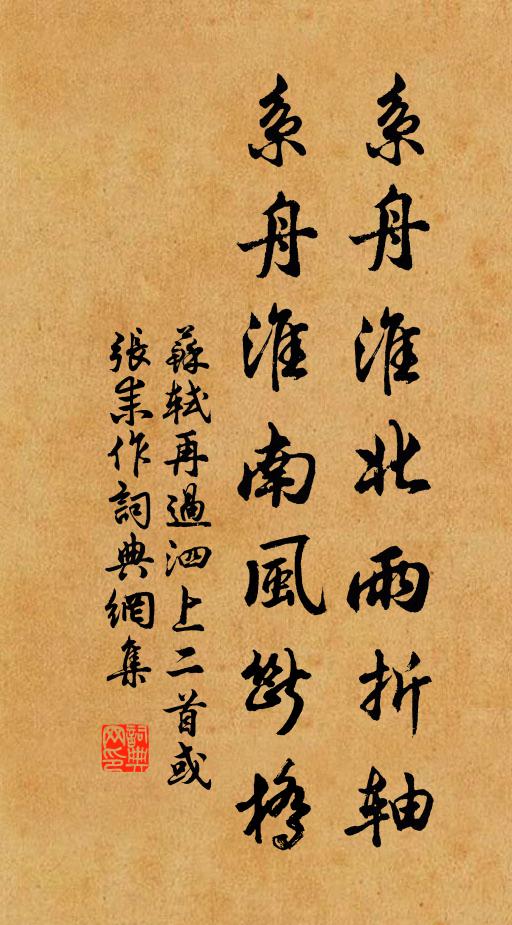 系舟淮北雨折軸
系舟淮南風斷橋
蘇軾再過泗上二首或
張耒作詞典網集
詞典
網印